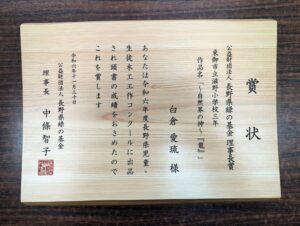 賞状
公益財団法人 長野県緑の基金 理事長賞
東御市立滋野小学校三年
作品名 ～自然界の神～『龍』
白倉 愛琉 様
あなたは令和六年度長野県児童・
生徒木工工作コンクールに出品
され頭書の成績をおさめたので
これを賞します
令和六年十一月三十日
公益財団法人 長野県緑の基金
理事長 中條智子